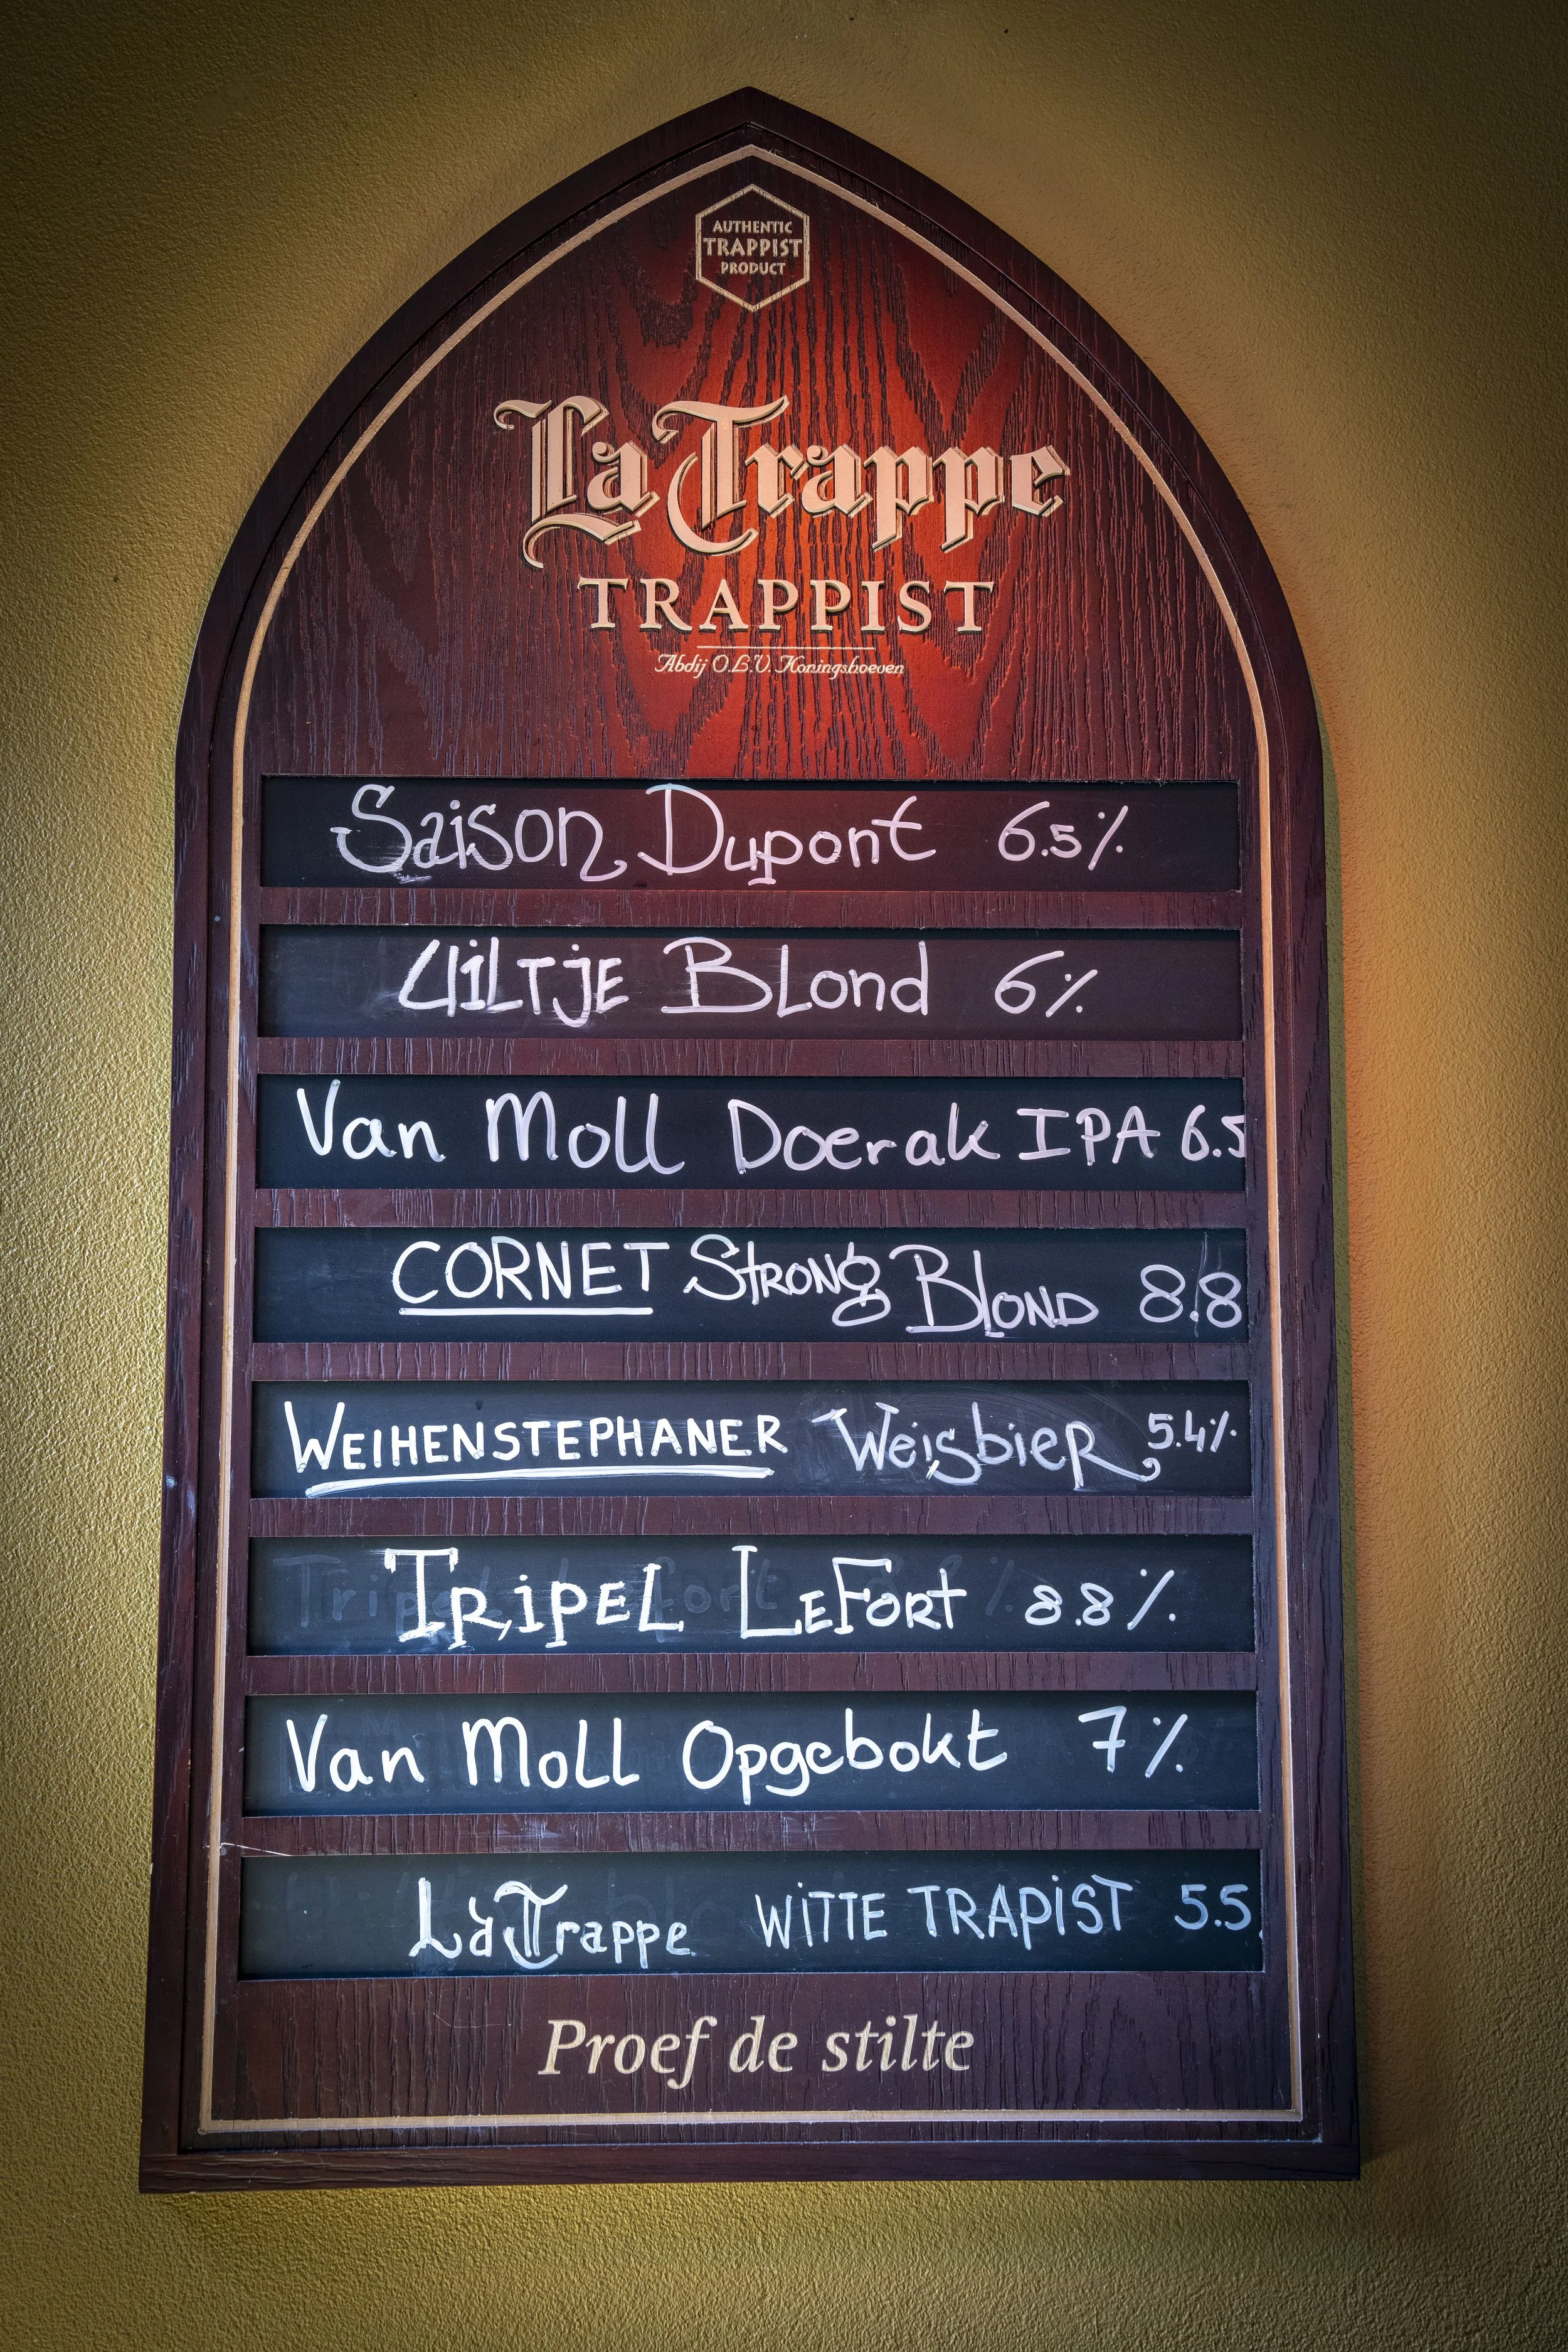 AUTHENTIC
TRAPPIST
PRODUCT
La Trappe
TRAPPIST
Abdij O.L.V. Koningshoeven
Saison Dupont 6.5%
UiLTjE BLond 6%
Van Moll Doerak IPA 6.5
CORNET StRONg BlOND 8.8
WEIHENSTEPHANER WeisbieR 5.4%
TRipEL LEFORt 8.8%
Van Moll Opgebokt 7%
La Trappe WiTTE TRAPiST 5.5
Proef de stilte